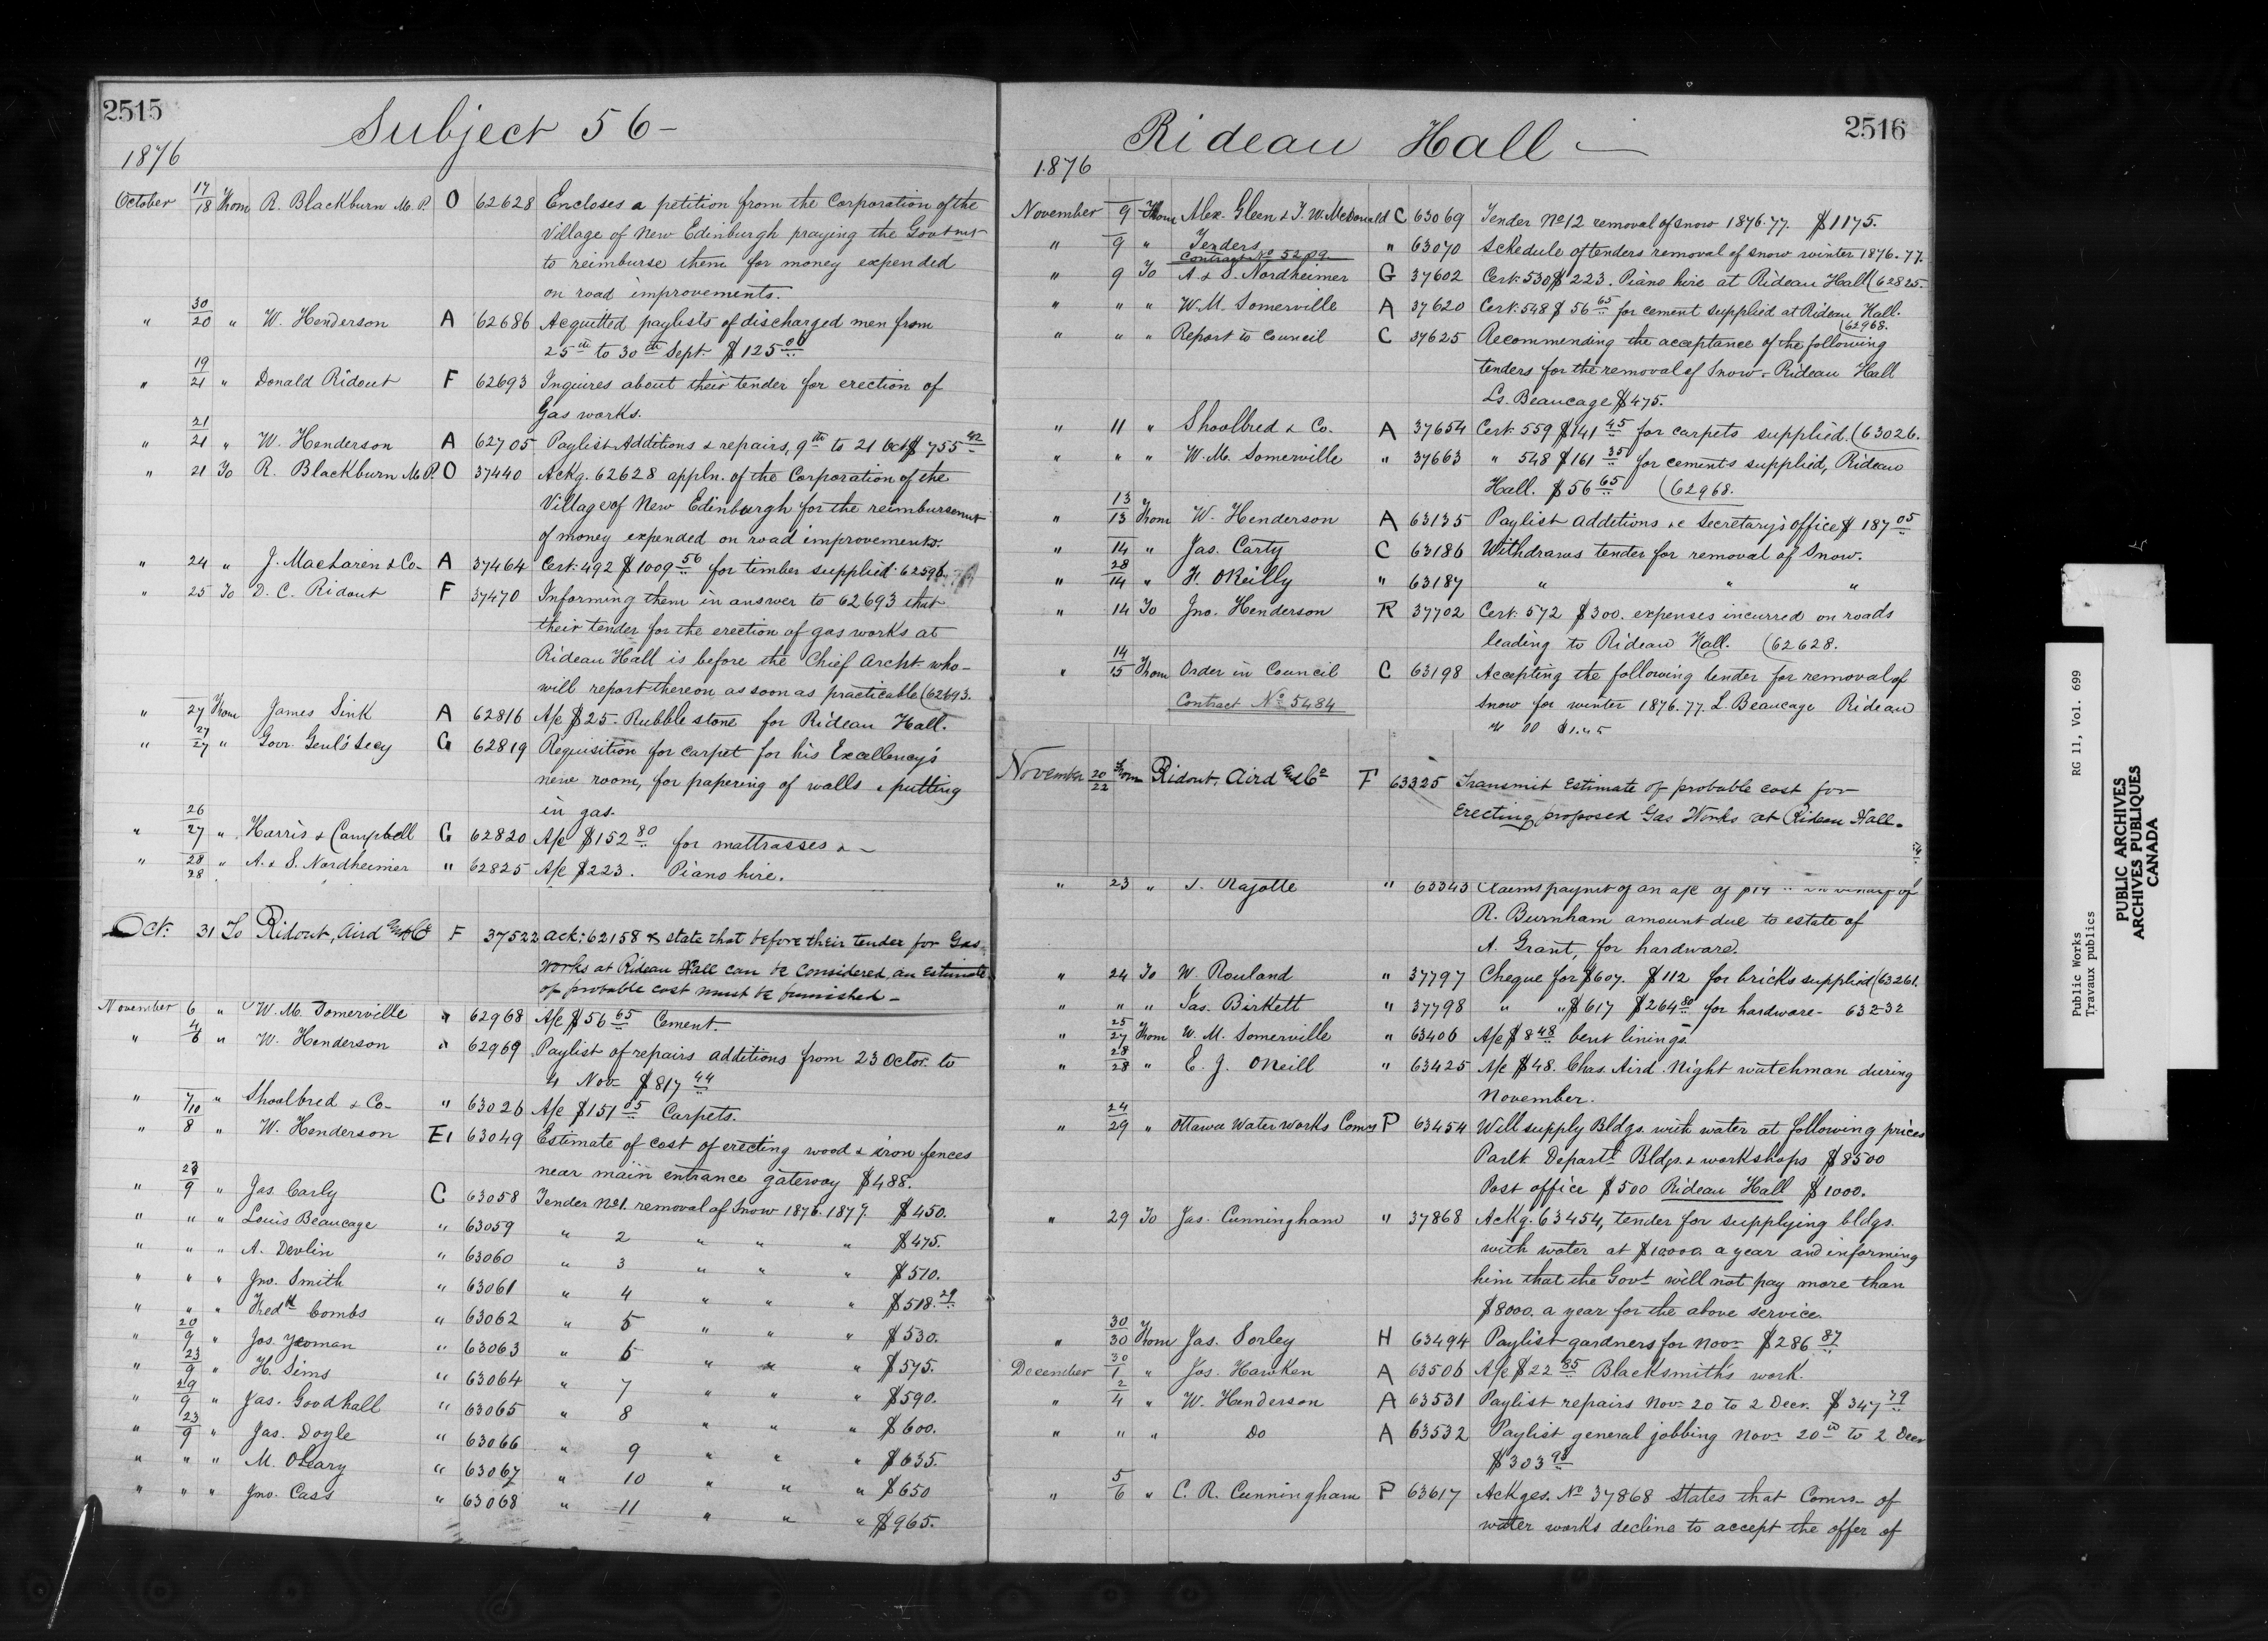 2515
Subject 56 —
1876
October 17/18 From R. Blackburn M.P. O 62628 Encloses a petition from the Corporation of the
Village of New Edinburgh praying the Govt
to reimburse them for money expended
on road improvements.
" 30/20 " W. Henderson A 62686 Acquitted paylists of discharged men from
25th to 30th Sept. $125.00
" 19/21 " Donald Ridout F 62693 Inquires about their tender for erection of
Gas works.
" 21/21 " W. Henderson A 62705 Paylist Additions & repairs, 9th to 21 Oct $755 42
" 21 To R. Blackburn M.P. O 37440 Ackg. 62628 appln. of the Corporation of the
Village of New Edinburgh for the reimbursement
of money expended on road improvements.
" 24 " J. MacLaren & Co- A 37464 Cert. 492 $1009 56 for timber supplied. 62596
" 25 To D. C. Ridout F 37470 Informing them in answer to 62693 that
their tender for the erection of gas works at
Rideau Hall is before the Chief Archt. who-
will report thereon as soon as practicable (62693.
" 27 From James Sink A 62816 A/c $25- Rubble stone for Rideau Hall.
" 27/27 " Govr. Genl's Secy G 62819 Requisition for carpet for his Excellency's
new room, for papering of walls & putting
in gas.
" 26/27 " Harris & Campbell G 62820 A/c $152 80 for mattrasses & -
" 28/28 " A. & S. Nordheimer " 62825 A/c $223. Piano hire.
Oct. 31 To Ridout, Aird and Co F 37522 Ack: 62158 & state that before their tender for Gas
Works at Rideau Hall can be considered an Estimate
of probable cost must be furnished -
November 6 " W. M. Somerville " 62968 A/c $56 65 Cement.
" 4/6 " W. Henderson " 62969 Paylist of repairs additions from 23 Octor. to
4 Nov- $817 44
" 7/10 " Shoolbred & Co- " 63026 A/c $151 05 Carpets.
" 8 " W. Henderson E1 63049 Estimate of cost of erecting wood & iron fences
near main entrance gateway $488.
" 23/9 " Jas. Carly C 63058 Tender No1. removal of Snow 1876.1877. $450.
" " " Louis Beaucage " 63059 " 2 " " " $475.
" " " A. Devlin " 63060 " 3 " " " $510.
" " " Jno. Smith " 63061 " 4 " " " $518.29
" " " Fredk Combs " 63062 " 5 " " " $530.
" 20/9 " Jos. Yeoman " 63063 " 6 " " " $575.
" 23/9 " H. Sims " 63064 " 7 " " " $590.
" 29/9 " Jas. Goodhall " 63065 " 8 " " " $600.
" 23/9 " Jas. Doyle " 63066 " 9 " " " $635.
" " " M. OLeary " 63067 " 10 " " " $650
" " " Jno. Cass " 63068 " 11 " " " $965.
2516
Rideau Hall —
1876
November 9 From Alex. Gleen & J. W. McDonald C 63069 Tender No12 removal of snow 1876.77. $1175.
" 9 " Tenders " 63070 Schedule of tenders removal of snow winter 1876.77.
Contract No 5209.
" 9 To A & S. Nordheimer G 37602 Cert. 530 $223. Piano hire at Rideau Hall (62825.
" " " W. M. Somerville A 37620 Cert. 548 $56 65 for cement supplied at Rideau Hall.
(62968.
" " " Report to Council C 37625 Recommending the acceptance of the following
tenders for the removal of Snow - Rideau Hall
Ls. Beaucage $475.
" 11 " Shoolbred & Co. A 37654 Cert. 559 $141 45 for carpets supplied. (63026.
" " " W. M. Somerville " 37663 " 548 $161 35 for cements supplied, Rideau
Hall. $56 65 (62968.
" 13/13 From W. Henderson A 63135 Paylist additions &c Secretary's office $187 05
" 14 " Jas. Carty C 63186 Withdraws tender for removal of Snow.
" 28/14 " F. OReilly " 63187 " " "
" 14 To Jno. Henderson R 37702 Cert. 572 $300. expenses incurred on roads
leading to Rideau Hall. (62628.
" 14/15 From Order in Council C 63198 Accepting the following tender for removal of
Contract No 5484 snow for winter 1876.77. L. Beaucage Rideau
November 20/22 From Ridout, Aird and Co F 63325 Transmit Estimate of probable cost for
Erecting proposed Gas Works at Rideau Hall.
" 23 " Rajotte " 63343 Claims paymt of an a/c of
R. Burnham amount due to estate of
A. Grant, for hardware.
" 24 To W. Rouland " 37797 Cheque for $607. $112 for bricks supplied (63261.
" " " Jas. Birkett " 37798 " " $617 $264 80 for hardware- 63232
" 25/27 From W. M. Somerville " 63406 A/c $8 48 bent linings.
" 28/28 " E. J. ONeill " 63425 A/c $48. Chas. Aird Night watchman during
November.
" 24/29 " Ottawa Water Works Comrs P 63454 Will supply Bldgs. with water at following prices
Parlt Departl Bldgs. & workshops $8500
Post office $500 Rideau Hall $1000.
" 29 To Jas. Cunningham " 37868 Ackg. 63454, tender for supplying bldgs.
with water at $10000 a year and informing
him that the Govt will not pay more than
$8000. a year for the above service.
" 30/30 From Jas. Sorley H 63494 Paylist gardners for Novr $286 87
December 30/1 " Jos. Hawken A 63506 A/c $22 85 Blacksmith's work.
" 2/4 " W. Henderson A 63531 Paylist repairs Nov. 20 to 2 Decr. $347 79
" " " Do A 63532 Paylist general jobbing Novr 20th to 2 Decr
$303 98
" 5/6 " C. R. Cunningham P 63617 Ackges. No 37868 states that Comrs- of
water works decline to accept the offer of
Public Works RG 11, Vol. 699
Travaux publics
PUBLIC ARCHIVES
ARCHIVES PUBLIQUES
CANADA